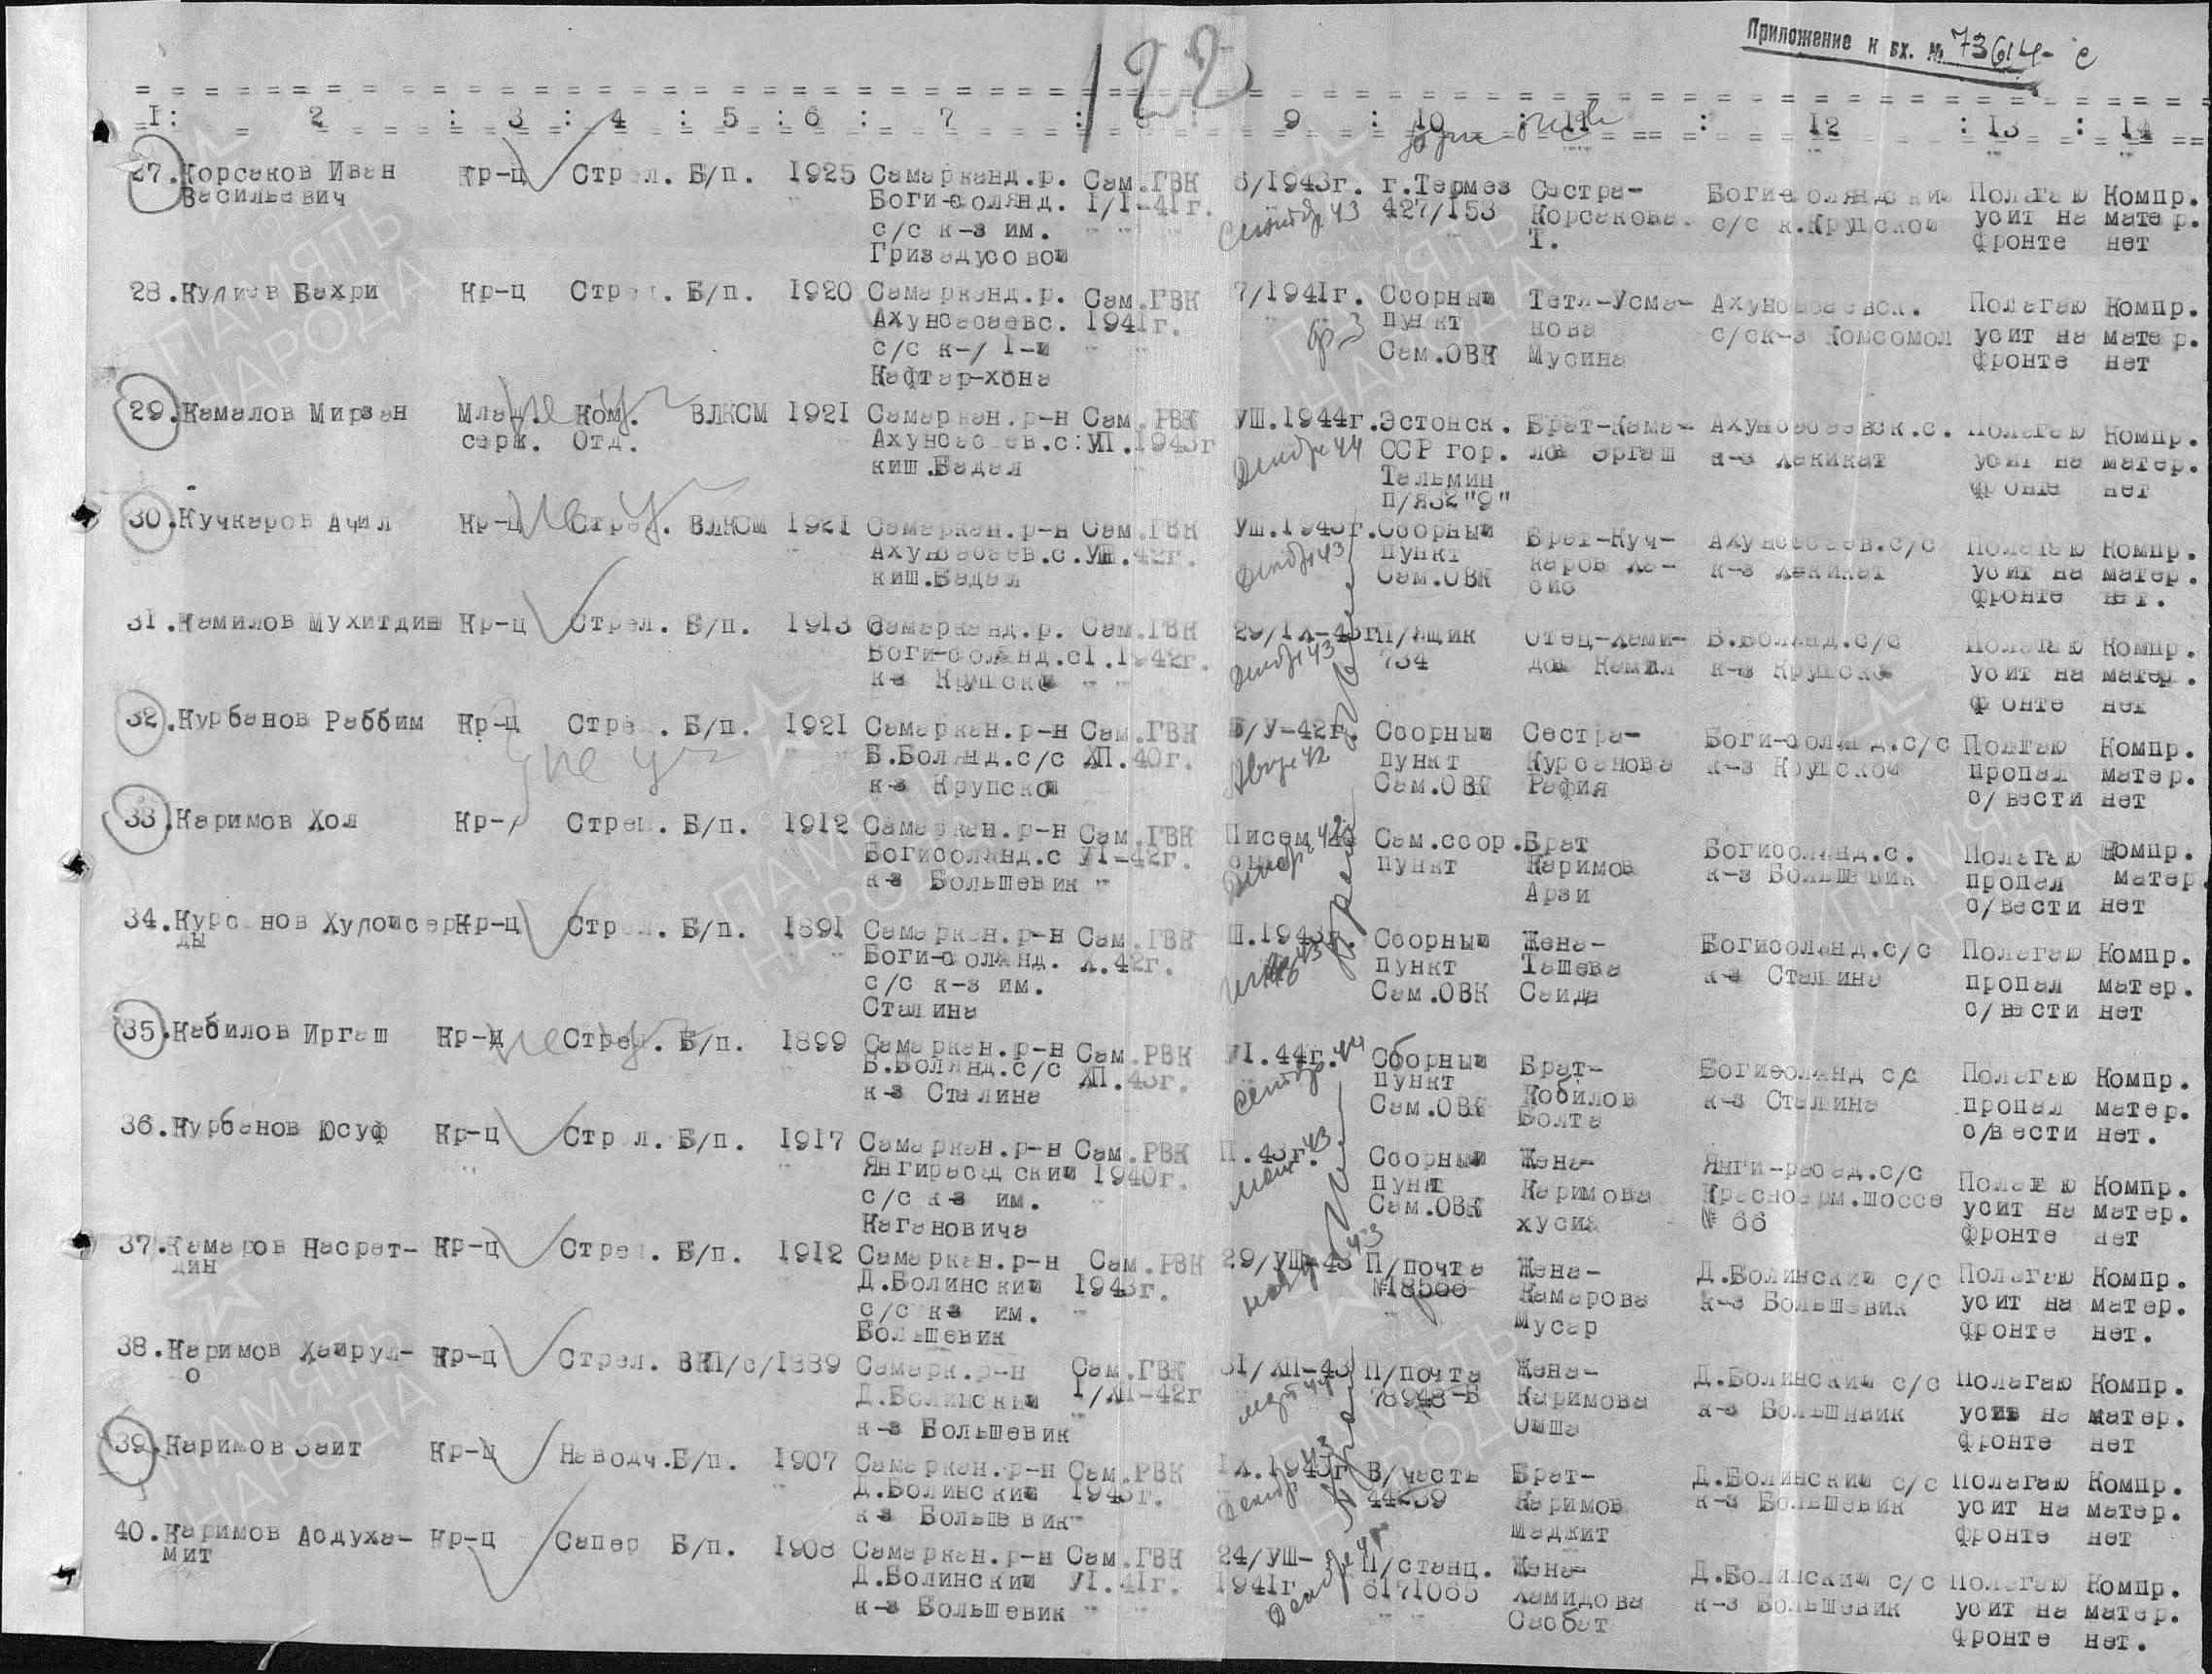 Приложение к вх. № 73614-с
122
1: 2 : 3 : 4 : 5 : 6 : 7 : 8 : 9 : 10 : 11 : 12 : 13 : 14
27.Корсаков Иван Кр-ц Стрел. Б/п. 1925 Самарканд.р. Сам.ГВК 6/1943г. г.Термез Сестра- Полагаю Компр.
Васильевич Боги-боланд. 1/1-41г. 427/153 Корсакова с/с к.Крупской убит на матер.
с/с к-з им. Т. фронте нет
Гризадубовой
28.Кулиев Бахри Кр-ц Стрел. Б/п. 1920 Самарканд.р. Сам.ГВК 7/1941г. Сборный Тетя-Усма- Полагаю Компр.
Ахунбабаевс. 1941г. пункт нова с/ск-з Комсомол убит на матер.
с/с к-/ 1-й Сам.ОВК Мусина фронте нет
Кафтар-хона
29.Камалов Мирзан Млад. Ком. ВЛКСМ 1921 Самаркан.р-н Сам.РВК УШ.1944г. Эстонск. Брат-Кама- Ахунбабаевск.с. Полагаю Компр.
серж. Отд. Ахунбабаев.с: 1943г Декабре 44 ССР гор. лов Эргаш к-з Хакикат убит на матер.
киш.Бадал Тальмин фронте нет
п/я32"9"
30.Кучкаров Ачил Кр-ц Стрел. ВЛКСМ 1921 Самаркан.р-н Сам.ГВК УШ.1943г. Сборный Брат-Куч- Ахунбабаев.с/с Полагаю Компр.
Ахунбабаев.с. УШ.42г. пункт каров к-з Хакикат убит на матер.
киш.Бадал Сам.ОВК фронте нет.
31.Камилов Мухитдин Кр-ц Стрел. Б/п. 1913 Самарканд.р. Сам.ГВК 29/IX-43г П/ящик Отец-Хами- Б.Боланд.с/с Полагаю Компр.
Боги-боланд.с 1.1942г. 734 дов Камил к-з Крупской убит на матер.
к-з Крупской фронте нет
32.Курбанов Раббим Кр-ц Стрел. Б/п. 1921 Самаркан.р-н Сам.ГВК У-42г. Сборный Сестра- Боги-боланд.с/с Полагаю Компр.
Б.Боланд.с/с ХП.40г. пункт Курбанова к-з Крупской пропал матер.
к-з Крупской Сам.ОВК Рафия б/вести нет
33.Каримов Хол Кр-/ Стрел. Б/п. 1912 Самаркан.р-н Сам.ГВК Писем Сам.сбор. Брат Богиболанд.с. Полагаю Компр.
Богиболанд.с У1-42г. пункт Каримов к-з Большевик пропал матер
к-з Большевик Арзи б/вести нет
34.Курбанов Хулойбер Кр-ц Стрел. Б/п. 1891 Самаркан.р-н Сам.ГВК Ш.1943г. Сборный Жена- Богиболанд.с/с Полагаю Компр.
ды Боги-боланд. Х.42г. пункт Ташева к-з Сталина пропал матер.
с/с к-з им. Сам.ОВК Саида б/вести нет
Сталина
35.Кабилов Иргаш Кр-ц Стрел. Б/п. 1899 Самаркан.р-н Сам.РВК У1.44г. Сборный Брат- Богиболанд с/с Полагаю Компр.
Б.Боланд.с/с ХП.43г. пункт Кобилов к-з Сталина пропал матер.
к-з Сталина Сам.ОВК Болта б/вести нет.
36.Курбанов Юсуф Кр-ц Стрел. Б/п. 1917 Самаркан.р-н Сам.РВК П.43г. Сборный Жена- Янги-рабад.с/с Полагаю Компр.
Янгирабадский 1940г. пункт Каримова Красноарм.шоссе убит на матер.
с/с к-з им. Сам.ОВК хусия № 66 фронте нет
Кагановича
37.Камаров Насрет- Кр-ц Стрел. Б/п. 1912 Самаркан.р-н Сам.РВК 29/УШ-43 П/почта Жена- Д.Болинский с/с Полагаю Компр.
дин Д.Болинский 1943г. Камарова к-з Большевик убит на матер.
с/с к-з им. Мусар фронте нет.
Большевик
38.Каримов Хайрул- Кр-ц Стрел. ВКП/б/ 1889 Самарк.р-н Сам.ГВК 31/ХП-43 П/почта Жена- Д.Болинский с/с Полагаю Компр.
о Д.Болинский 1/ХП-42г 78948-Б Каримова к-з Большевик убит на матер.
к-з Большевик Ойша фронте нет
39.Каримов Заит Кр-ц Наводч. Б/п. 1907 Самаркан.р-н Сам.РВК IX.1943г В/часть Брат- Д.Болинский с/с Полагаю Компр.
Д.Болинский 1943г. 44239 Каримов к-з Большевик убит на матер.
к-з Большевик Маджит фронте нет
40.Каримов Абдуха- Кр-ц Сапер Б/п. 1908 Самаркан.р-н Сам.ГВК 24/УШ- П/станц. Жена- Д.Болинский с/с Полагаю Компр.
мит Д.Болинский У1.41г. 1941г 6171065 Хамидова к-з Большевик убит на матер.
к-з Большевик Саобат фронте нет.